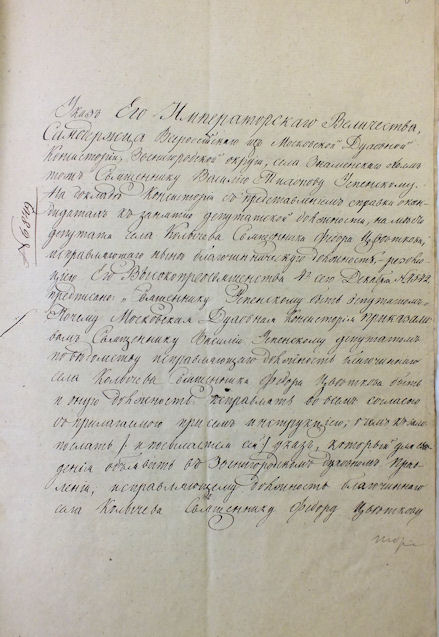 Указъ Его Императорскаго Величества,
Самодержца Всероссійскаго изъ Московской Духовной
Консисторіи, Звенигородской округи, села Знаменскаго
Священнику Василію Успенскому.
На докладъ Консисторіи съ представленіемъ справки о кан-
дидатахъ къ занятію депутатской должности, на мѣсто
депутата села Колычева Священника Федора Цвѣткова,
исправляющаго нынѣ благочинническую должность, резолю-
ціею Его Высокопреосвященства сего Декабря
предписано: "Священнику Успенскому быть депутатомъ."
Почему Московская Духовная Консисторія приказали:
вамъ Священнику Василію Успенскому депутатомъ
по вѣдомству исправляющаго должность благочиннаго
села Колычева Священника Федора Цвѣткова быть
и оную должность исправлять во всемъ согласно
съ прилагаемою при семъ инструкціею; о чемъ къ вамъ
послать (и посылается сей) указъ, который для свѣ-
денія объявить въ Звенигородскомъ духовномъ Прав-
леніи, исправляющему должность благочиннаго
села Колычева Священнику Федору Цвѣткову